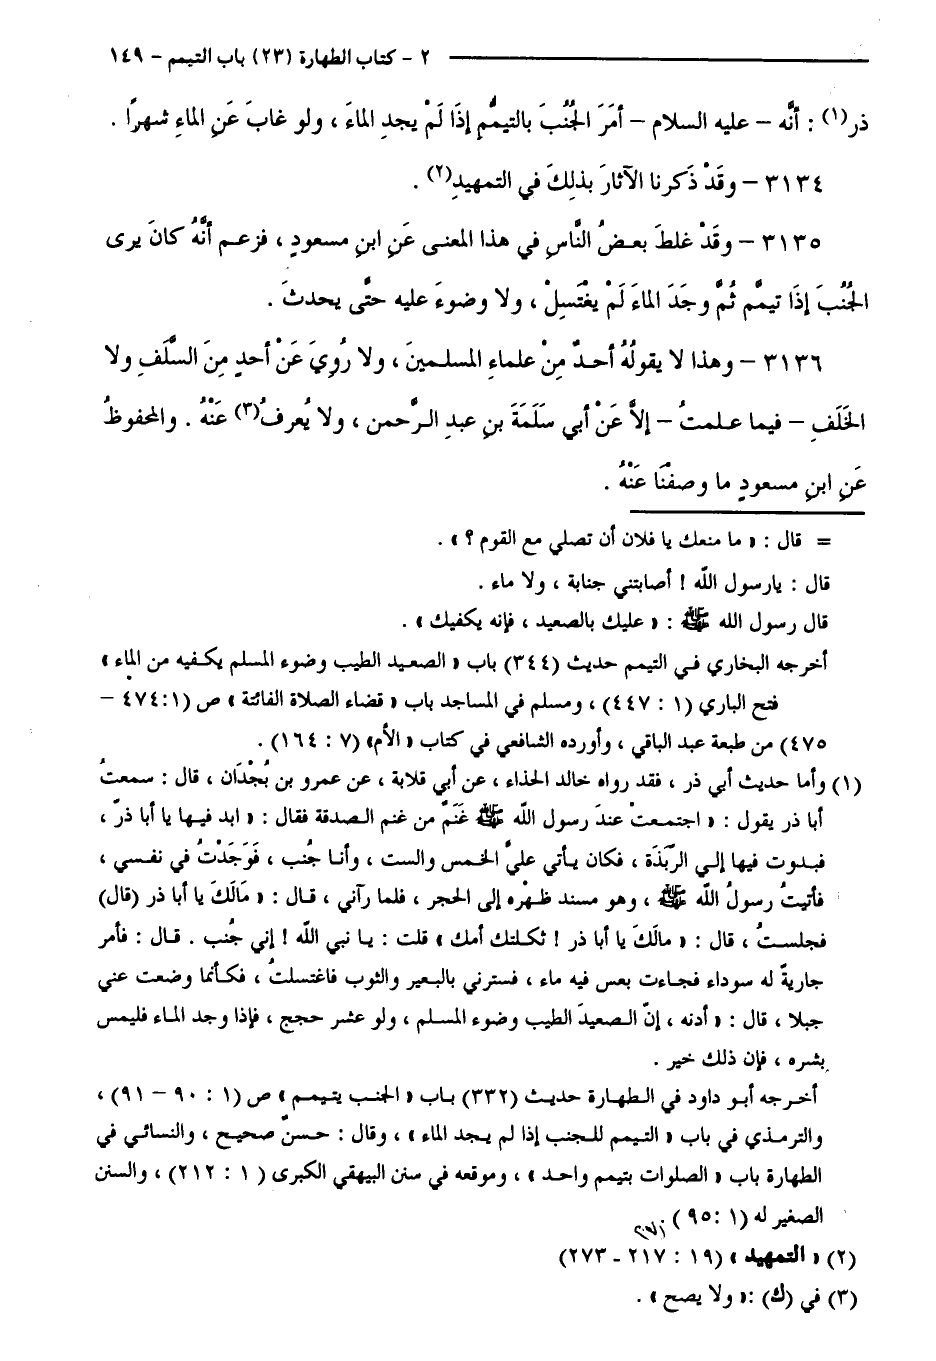 ٢ - كتاب الطهارة (٢٣) باب التيمم - ١٤٩
ذر(١) : أنَّه – عليه السلام – أمَرَ الجُنُبَ بالتيمُّمِ إذَا لَمْ يجدِ الماءَ ، ولو غابَ عَنِ الماءِ شهرًا .
٣١٣٤ – وقَدْ ذكرنا الآثارَ بذلِكَ في التمهيدِ(٢) .
٣١٣٥ – وقَدْ غلطَ بعضُ النَّاسِ في هذا المعنى عَنِ ابنِ مسعودٍ ، فزعم أنَّهُ كانَ يرى
الجُنُبَ إذَا تيممَّ ثُمَّ وجَدَ الماءَ لَمْ يغْتَسِلْ ، ولا وضوءَ عليه حتَّى يحدثَ .
٣١٣٦ – وهذا لا يقولُهُ أحدٌ مِنْ علماءِ المسلمينَ ، ولا رُوِيَ عَنْ أحدٍ مِنَ السَّلَفِ ولا
الخَلَفِ – فيما علمتُ – إلاَّ عَنْ أبي سَلَمَةَ بنِ عبدِ الرَّحمن ، ولا يُعرفُ(٣) عَنْهُ . والمحفوظُ
عَنِ ابنِ مسعودٍ ما وصفْنَا عَنْهُ .
= قال : « ما منعك يا فلان أن تصلي مع القوم ؟ » .
قال : يارسول اللّه ! أصابتني جنابة ، ولا ماء .
قال رسول الله ﷺ : « عليك بالصعيد ، فإنه يكفيك » .
أخرجه البخاري في التيمم حديث (٣٤٤) باب « الصعيد الطيب وضوء المسلم يكفيه من الماء »
فتح الباري (١ : ٤٤٧) ، ومسلم في المساجد باب « قضاء الصلاة الفائتة » ص (١:٤٧٤ –
٤٧٥) من طبعة عبد الباقي ، وأورده الشافعي في كتاب « الأم» (٧ : ١٦٤) .
(١) وأما حديث أبي ذر ، فقد رواه خالد الحذاء ، عن أبي قلابة ، عن عمرو بن بُجْدَان ، قال : سمعتُ
أبا ذر يقول : « اجتمعتْ عندَ رسول اللّه ﷺ غَنَمٌ من غنم الصدقة فقال : « ابد فيها يا أبا ذرّ ،
فبدوت فيها إلى الرّبَذَة ، فكان يأتي عليَّ الخمس والست ، وأنا جُنب ، فَوَجَدْتُ في نفسي ،
فأتيتُ رسولُ اللّه ﷺ ، وهو مسند ظهْره إلى الحجر ، فلما رآني ، قال : « مَالَكَ يا أبا ذر (قال)
فجلستُ ، قال : « مالَكَ يا أبا ذر ! ثكلتك أمك » قلت : يا نبي اللّه ! إني جُنب . قال : فأمر
جاريةً له سوداء فجاءت بعس فيه ماء ، فسترني بالبعير والثوب فاغتسلتُ ، فكأنما وضعت عني
جبلا ، قال : « أدنه ، إنّ الصعيدَ الطيب وضوء المسلم ، ولو عشر حجج ، فإذا وجد الماء فليمس
بشره ، فإن ذلك خير .
أخرجه أبو داود في الطهارة حديث (٣٣٢) باب « الجنب يتيمم » ص (١ : ٩٠ – ٩١) ،
والترمذي في باب « التيمم للجنب إذا لم يجد الماء » ، وقال : حسنٌ صحيح ، والنسائي في
الطهارة باب « الصلوات بتيمم واحد » ، وموقعه في سنن البيهقي الكبرى ( ١ : ٢١٢) ، والسنن
الصغير له (١ :٩٥) .
(٢) « التمهيد » (١٩ : ٢١٧ ـ ٢٧٣)
(٣) في (ك) :« ولا يصح » .